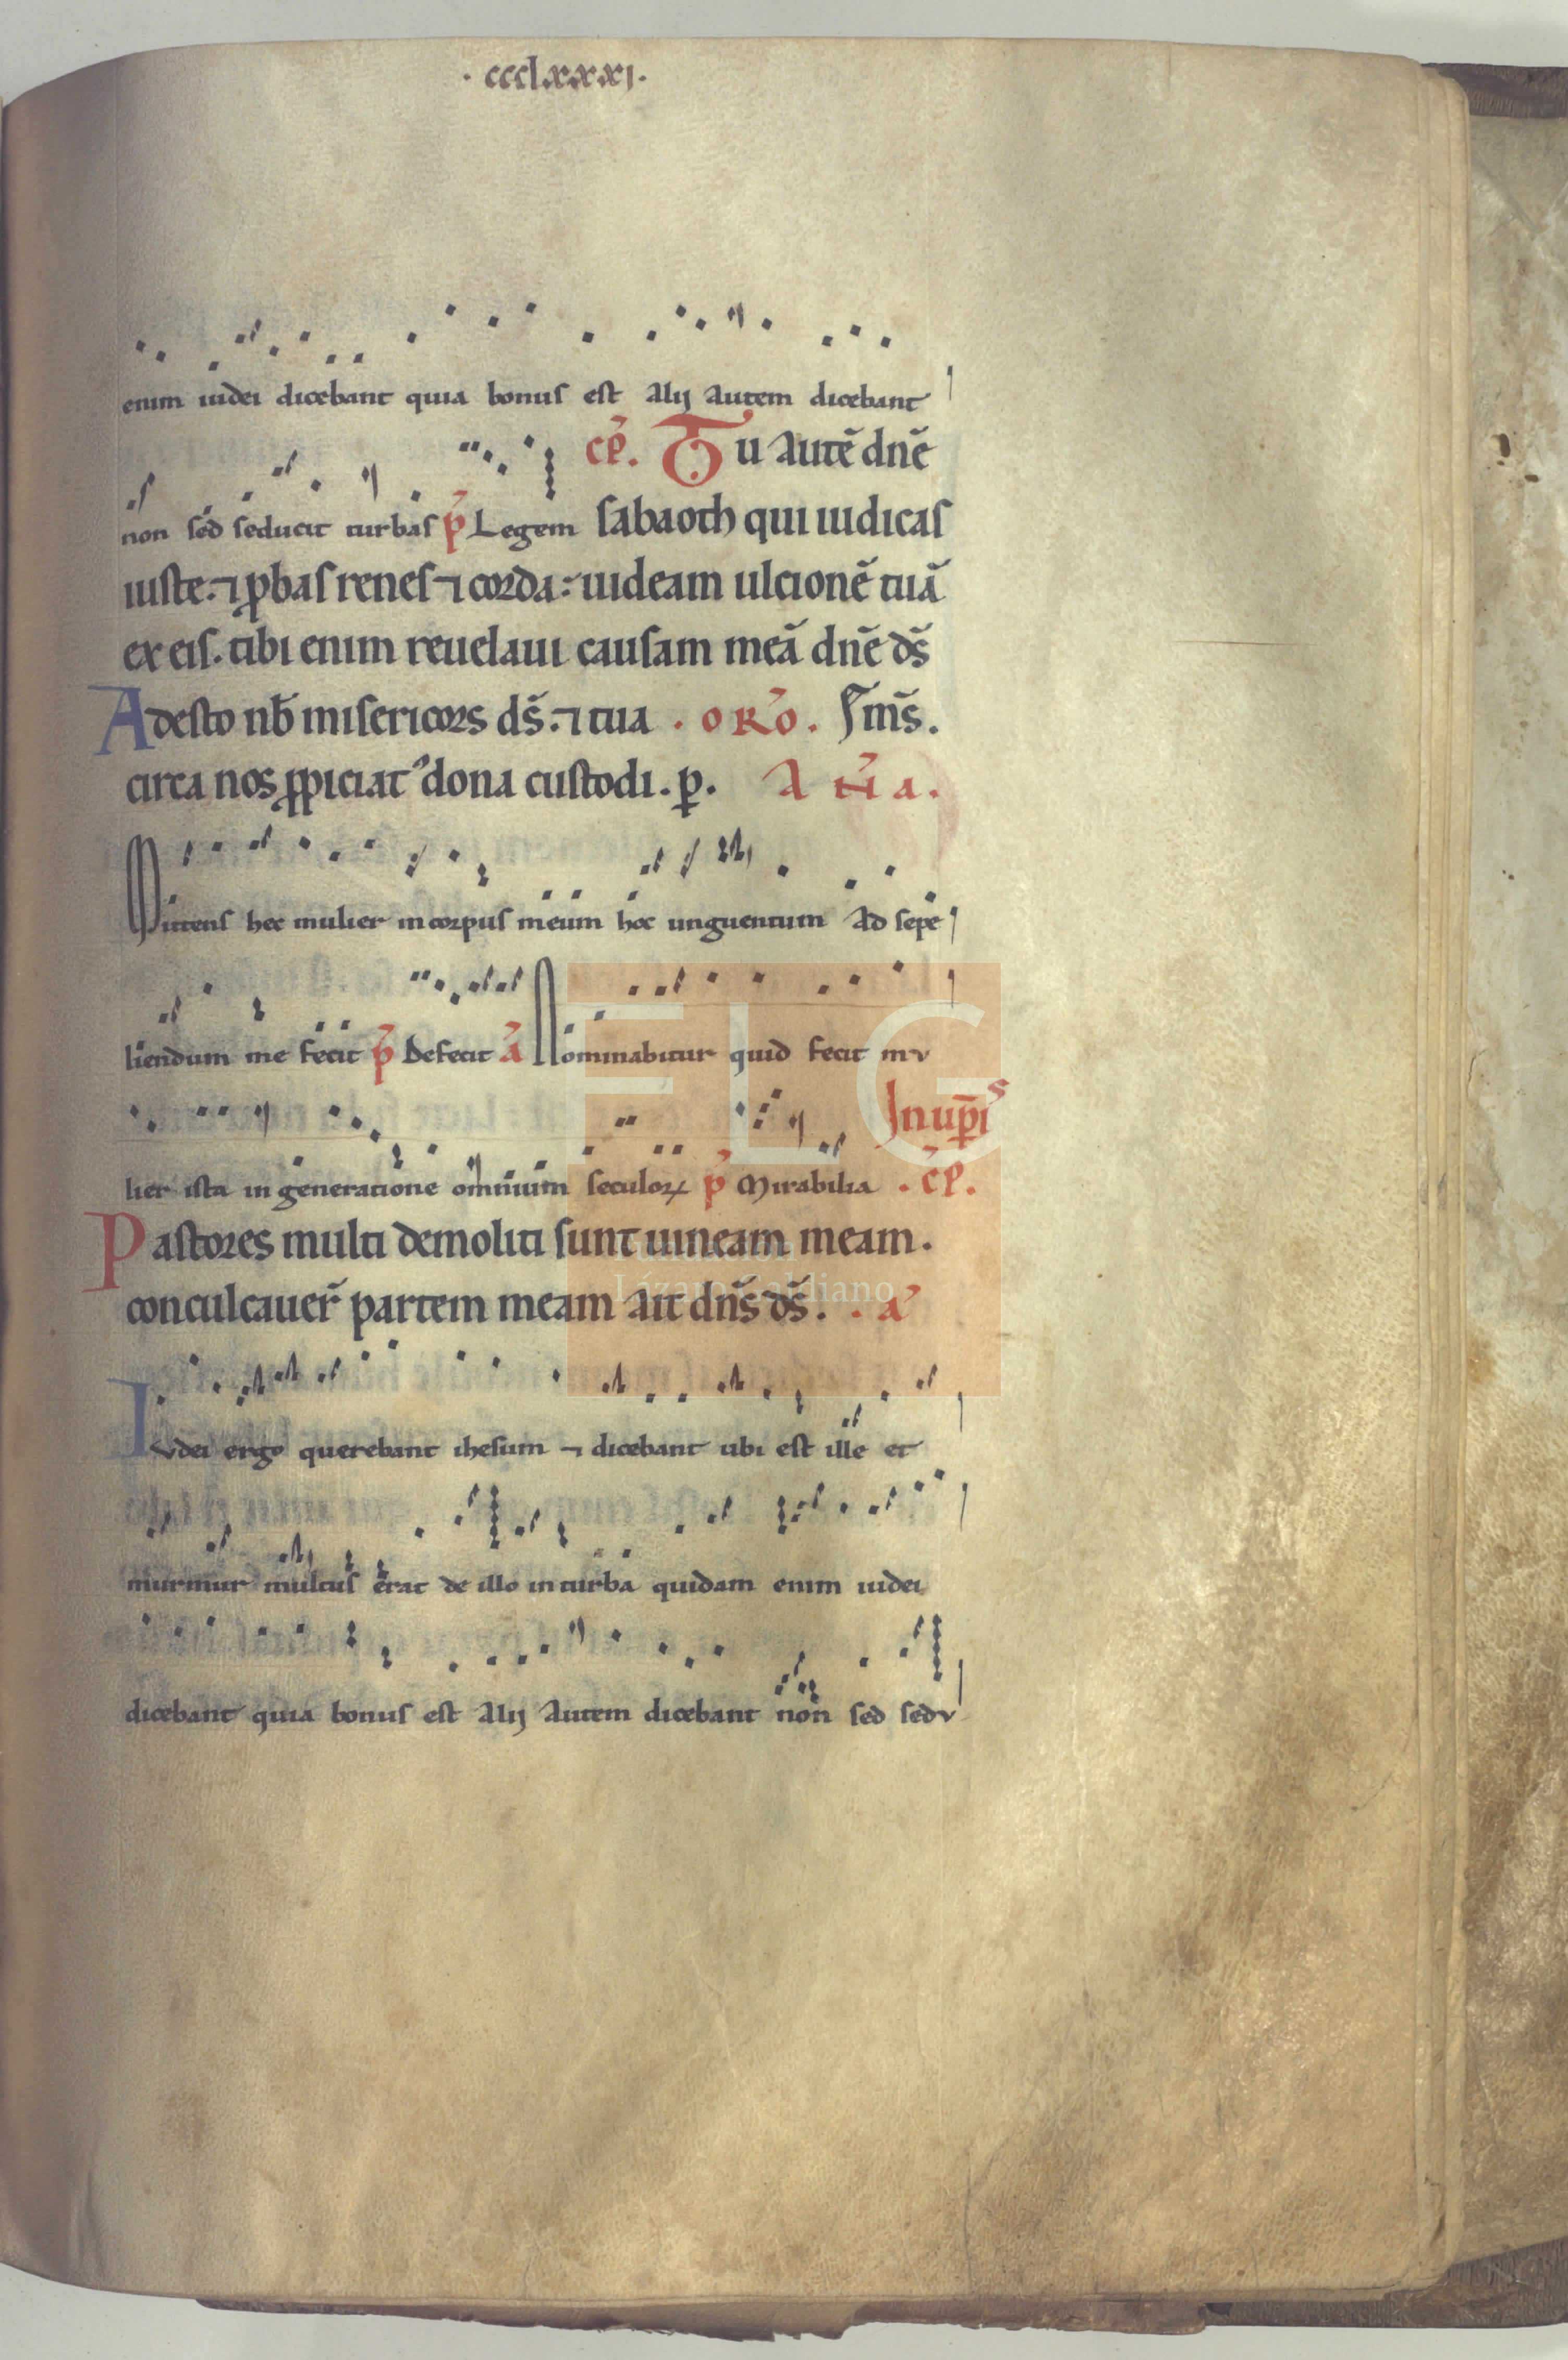 · ccclxxxxj ·
enim iudei dicebant quia bonus est Alij autem dicebant
cp̄. Tu autē dnē
non sed seducit turbas p̄ Legem sabaoth qui iudicas
iuste. ⁊ ꝓbas renes ⁊ corda: uideam ulcionē tuā
ex eis. tibi enim reuelaui causam meā dnē ds̄
Adesto nb̄ misericors ds̄. ⁊ tua . oRō . sm̄s.
circa nos ꝓpiciat᷒ dona custodi. ꝑ. AÑa.
Mittens hec mulier in corpus meum hoc unguentum Ad sepe
liendum me fecit p̄ Defecit ā Nominabitur quid fecit mu
In up̄is
lier ista in generatione omnium seculoꝝ p̄ Mirabilia . cp̄.
Pastores multi demoliti sunt uineam meam.
conculcauer̄ partem meam ait dn̄s ds̄. . a᷒
Iudei ergo querebant ihesum ⁊ dicebant ubi est ille et
murmur multus erat de illo in turba quidam enim iudei
dicebant quia bonus est Alij Autem dicebant non sed sedu
FLG
Fundación
Lázaro Galdiano